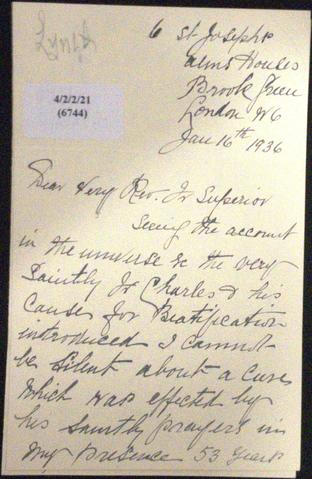 Lynch
4/2/2/21
(6744)
6 St Josephs
Alms Houses
Brook Green
London W6
Jan 16th 1936
Dear Very Rev. Fr Superior
Seeing the account
in the universe &c the very
Saintly Fr Charles & his
Cause for Beatification
introduced I cannot
be silent about a Cure
which was effected by
his saintly prayers in
my presence 53 years